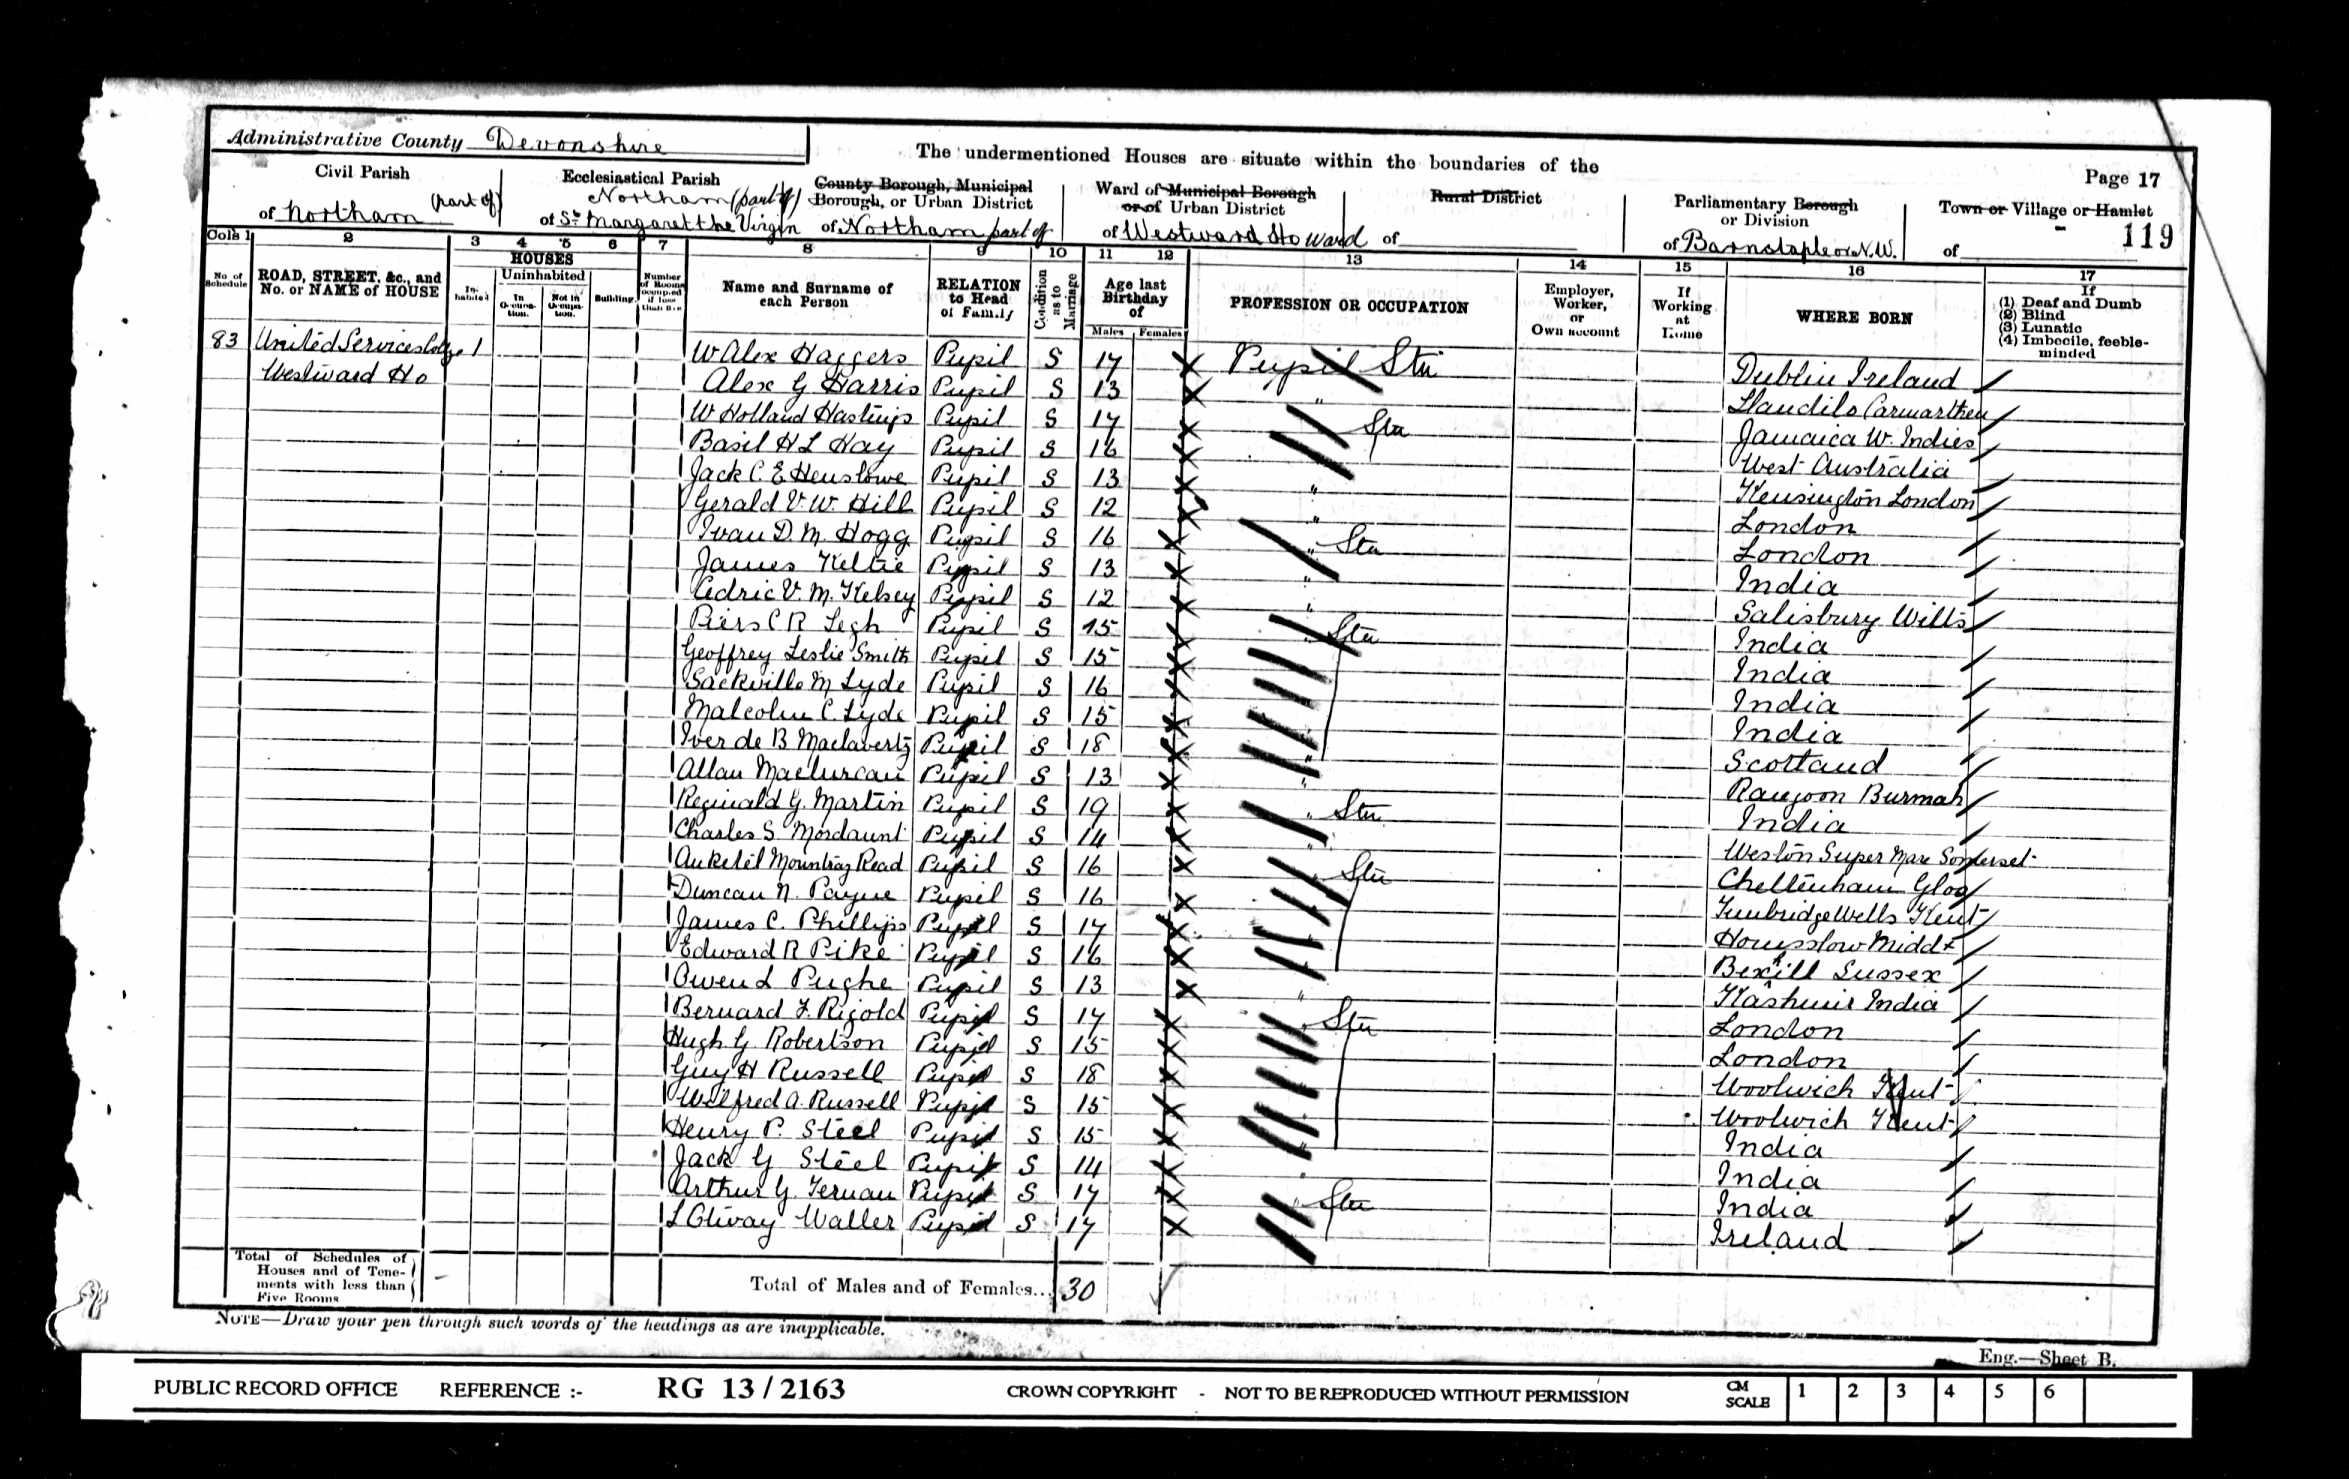 Administrative County Devonshire
The undermentioned Houses are situate within the boundaries of the
Page 17
119
Civil Parish
of Northam (part of)
Ecclesiastical Parish
Northam (part of)
of St Margaret the Virgin
County Borough, Municipal
Borough, or Urban District
of Northam part of
Ward of Municipal Borough
or of Urban District
of Westward Ho Ward
Rural District
of
Parliamentary Borough
or Division
of Barnstaple or N.W.
Town or Village or Hamlet
of -
Cols 1 2 3 4 5 6 7 8 9 10 11 12 13 14 15 16 17
No. of Schedule
ROAD, STREET, &c., and
No. or NAME of HOUSE
HOUSES
In-habited
Uninhabited
In Occupa-tion.
Not in Occupa-tion.
Building.
Number of Rooms occupied if less than five
Name and Surname of
each Person
RELATION
to Head
of Family
Condition as to Marriage
Age last
Birthday
of
Males Females
PROFESSION OR OCCUPATION
Employer,
Worker,
or
Own account
If
Working
at
Home
WHERE BORN
If
(1) Deaf and Dumb
(2) Blind
(3) Lunatic
(4) Imbecile, feeble-
minded
83 United Services College 1 W Alex Haggers Pupil S 17 Pupil Stu Dublin Ireland
Westward Ho Alex G Harris Pupil S 13 " Llandilo Carmarthen
W Holland Hastings Pupil S 17 Stu Jamaica W. Indies
Basil H L Hay Pupil S 16 West Australia
Jack C. E Henslowe Pupil S 13 " Kensington London
Gerald V. W. Hill Pupil S 12 " London
Ivan D. M. Hogg Pupil S 16 " Stu London
James Keltie Pupil S 13 " India
Cedric V. M. Kelsey Pupil S 12 " Salisbury Wilts
Piers C R Legh Pupil S 15 " Stu India
Geoffrey Leslie Smith Pupil S 15 India
Sackville M Lyde Pupil S 16 India
Malcolm C. Lyde Pupil S 15 India
Iver de B Pupil S 18 Scotland
Allan Maclurcan Pupil S 13 " Rangoon Burmah
Reginald G. Martin Pupil S 19 " Stu India
Charles S. Mordaunt Pupil S 14 " Weston Super Mare Somerset
Anketel Read Pupil S 16 " Stu Cheltenham Glos
Duncan N. Payne Pupil S 16 Tunbridge Wells Kent
James C. Phillips Pupil S 17 Hounslow Middx
Edward R Pike Pupil S 16 Bexhill Sussex
Owen L Pughe Pupil S 13 " Kashmir India
Bernard F. Rigold Pupil S 17 " Stu London
Hugh G Robertson Pupil S 15 London
Guy H Russell Pupil S 18 Woolwich Kent
Wilfred A. Russell Pupil S 15 Woolwich Kent
Henry P. Steel Pupil S 15 " India
Jack G Steel Pupil S 14 " India
Arthur G. Ternan Pupil S 17 " Stu India
L Otway Waller Pupil S 17 Ireland
Total of Schedules of
Houses and of Tene-
ments with less than
Five Rooms
-
Total of Males and of Females... 30
NOTE—Draw your pen through such words of the headings as are inapplicable.
Eng.—Sheet B.
PUBLIC RECORD OFFICE REFERENCE :- RG 13 / 2163 CROWN COPYRIGHT - NOT TO BE REPRODUCED WITHOUT PERMISSION CM SCALE 1 2 3 4 5 6